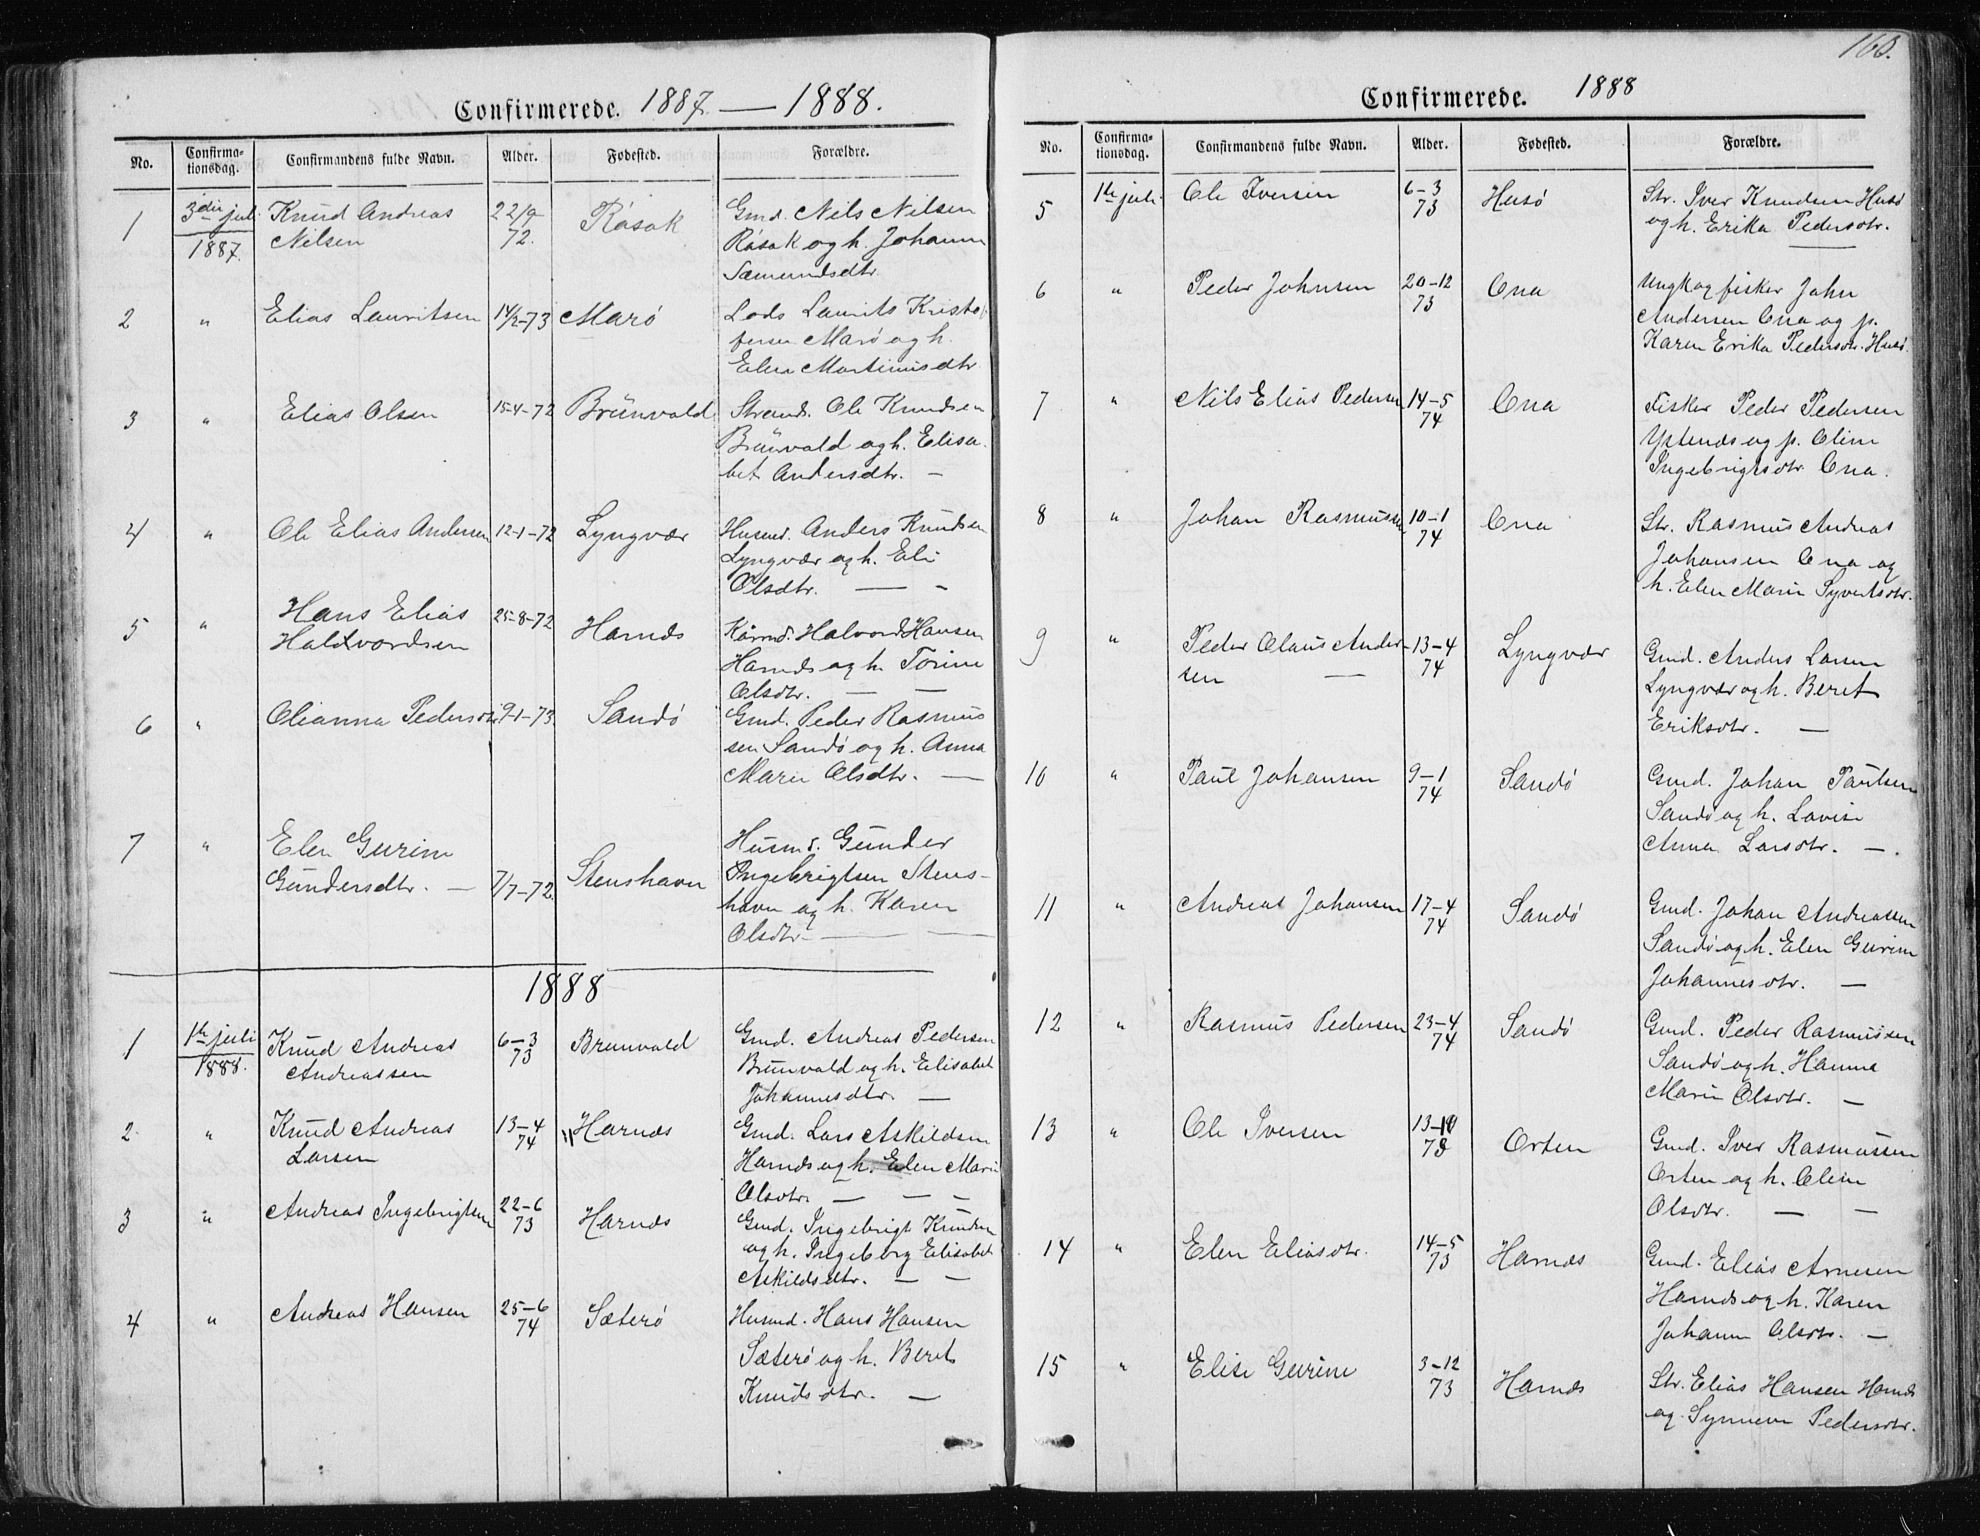 Confirmerede. 1887 — 1888.
No. Confirmationsdag. Confirmandens fulde Navn. Alder. Fødested. Forældre.
1 3die juli 1887. Knud Andreas Nilsen 22/9 72. Råsok Gmd. Nils Nilsen
Råsok og h. Johanne
Samundsdtr
2 " Elias Lauritsen 14/2-73 Marö Lods Laurits Kristof
fersen Marö og h.
Elen Martinusdtr
3 " Elias Olsen 15-4-72 Brünvald Strand. Ole Knudsen
Brünvald og h. Elisa-
bet Andersdtr. —
4 " Ole Elias Andersen 12-1-72 Lyngvær Husmd. Anders Knudsen
Lyngvær og h. Eli
Olsdtr. — -
5 " Hans Elias Halvordsen 25-8-72 Harnæs Halvord Hansen
Harnæs og h. Torine
Olsdtr. — —
6 " Olianna Pedersdtr 9-1-73 Sandö Gmd. Peder Rasmus
sen Sandö og h. Anna
Marie Olsdtr. —
7 " Elen Gurine Gundersdtr. — 7/7-72. Stenshavn Husmd. Gunder
Ingebrigtsen Stens-
havn og h. Karen
Olsdtr — —
1888
1 1ste juli 1888. Knud Andreas Andreassen 6-3 73 Brunvald Gmd. Andreas Pedersen
Brunvald og h. Elisabet
Johannesdtr. —
2. " Knud Andreas Larsen 13-4 74 " Harnæs Gmd. Lars Askildsen
Harnæs og h. Elen Marie
Olsdtr. — — —
3 " Andreas Ingebrigtsen 22-6 73 Harnæs Gmd. Ingebrigt Knudsen
og h. Ingeborg Elisabet
Askildsdtr. — —
4 " Andreas Hansen 25-6 74 Sæterö Husmd. Hans Hansen
Sæterö og h. Beret
Knudsdtr. —
160.
Confirmerede. 1888
No. Confirmationsdag. Confirmandens fulde Navn. Alder. Fødested. Forældre.
5 1ste juli Ole Iversen 6-3 73 Husö Str. Iver Knudsen Husö
og h. Erika Pedersdtr.
6 " Peder Johnsen 20-12 73 Ona Ungk og fisker John
Andersen Ona og p.
Karen Erika Pedersdtr. Husö.
7 " Nils Elias Pedersen 14-5 74 Ona Fisker Peder Pedersen
og p. Oline
Ingebrigtsdtr. Ona.
8 " Johan Rasmussen 10-1 74 Ona Str. Rasmus Andreas
Johansen Ona og
h. Elen Marie Syvertsdtr.
9 " Peder Olaus Ander-sen — 13-4 74 Lyngvær Gmd. Anders Larsen
Lyngvær og h. Beret
Eriksdtr. —
10 " Paul Johansen 9-1 74 Sandö Gmd. Johan Paulsen
Sandö og h. Lovise
Anna Larsdtr. —
11 " Andreas Johansen 17-4 74 Sandö Gmd. Johan Andreassen
Sandö og h. Elen Gurine
Johannesdtr. —
12 " Rasmus Pedersen 23-4 74 Sandö Gmd. Peder Rasmussen
Sandö og h. Hanna
Marie Olsdtr. —
13 " Ole Iversen 13-10 73 Orten Gmd. Iver Rasmussen
Orten og h. Oline
Olsdtr. — —
14 " Elen Eliasdtr. 14-5 73 Harnæs Gmd. Elias Arnesen
Harnæs og h. Karen
Johanne Olsdtr. —
15 " Elise Gurine 3-12 73 Harnæs Str. Elias Hansen Harnæs
og Synneve Pedersdtr.